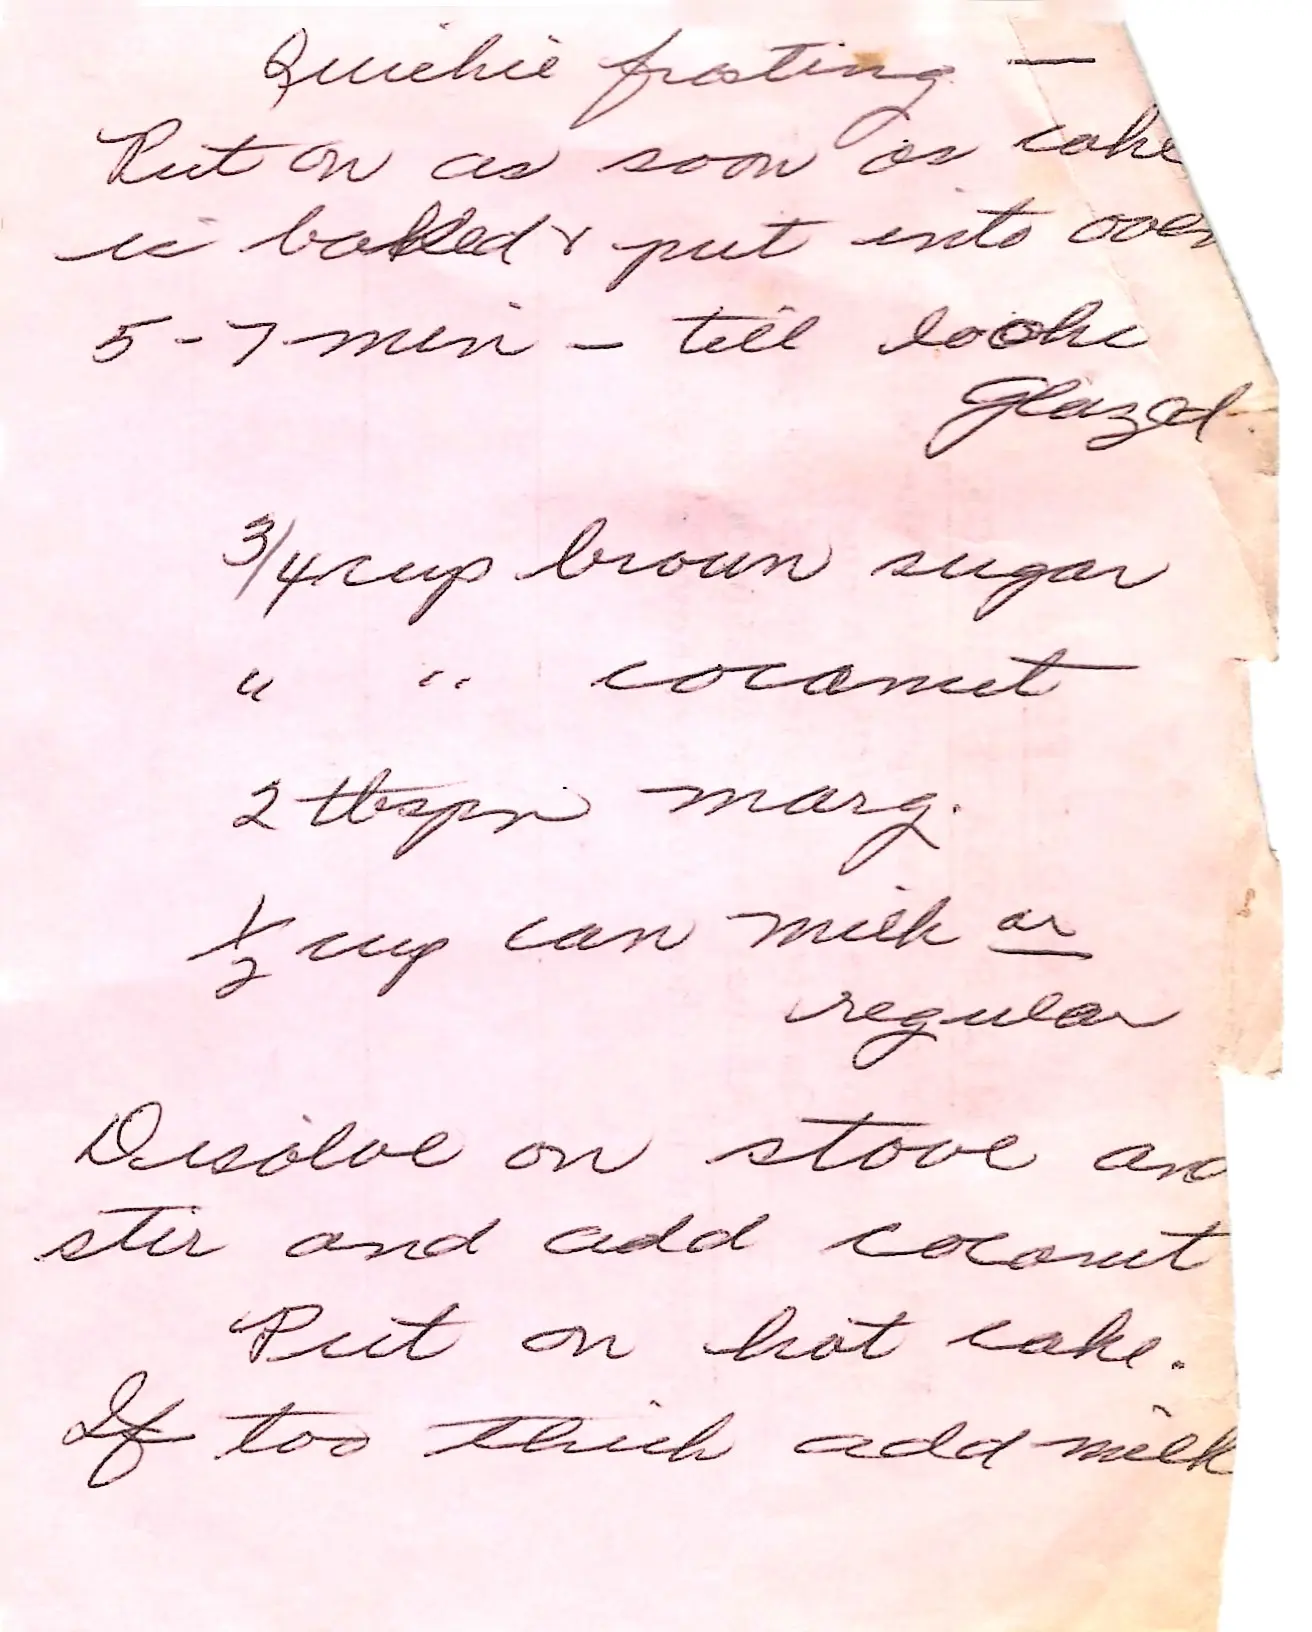 Quickie frosting —
Put on as soon as cake
is baked & put into oven
5-7 min — till looks
glazed.
3/4 cup brown sugar
" " coconut
2 tbspn marg.
1/2 cup can milk or
regular
Disolve on stove and
stir and add coconut
Put on hot cake.
If too thick add milk